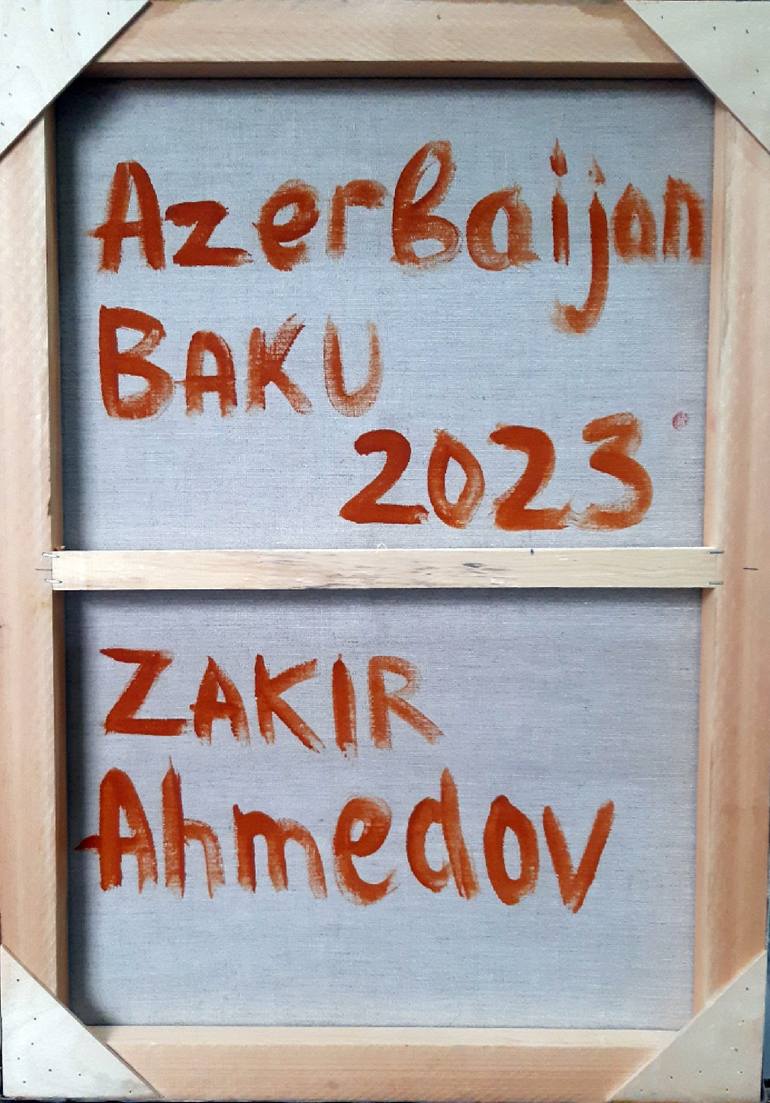 Azerbaijan
BAKU
2023
ZAKIR
Ahmedov